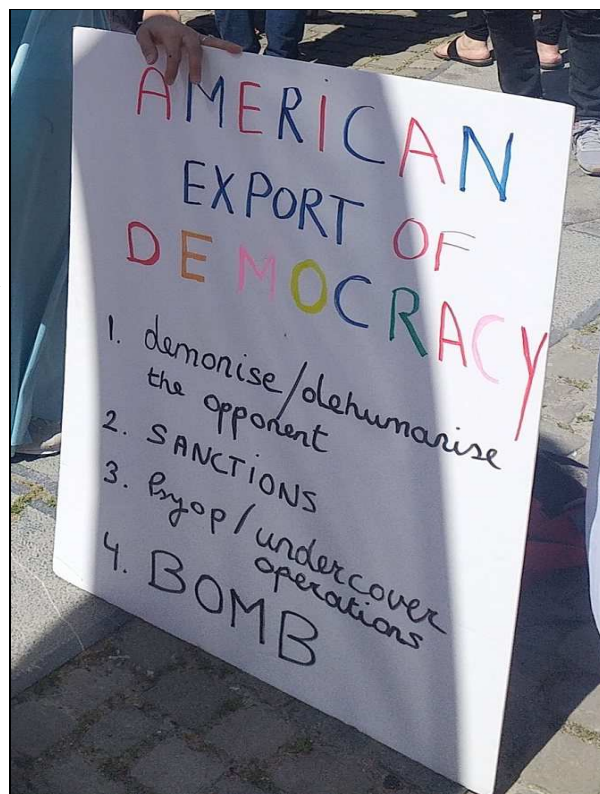 AMERICAN
EXPORT OF
DEMOCRACY
1. demonise/dehumanise
the opponent
2. SANCTIONS
3. Psyop/undercover
operations
4. BOMB